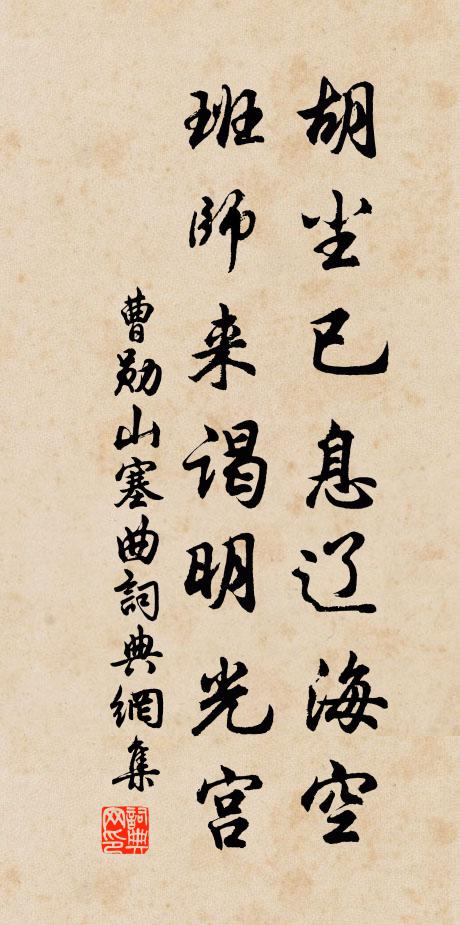 胡尘已息辽海空
班师来谒明光宫
曹勋山塞曲詞典網集
詞典网印